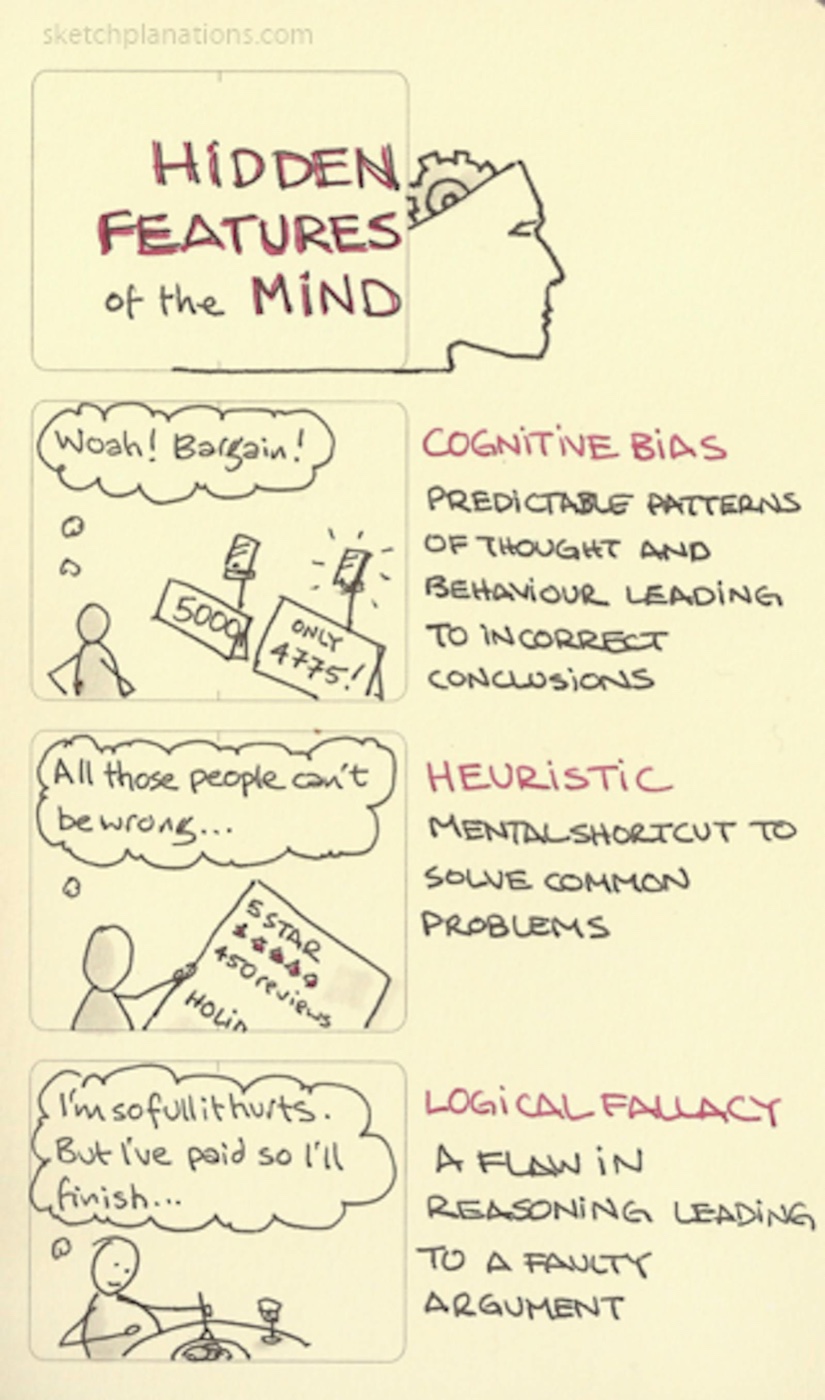 sketchplanations.com
HiDDEN
FEATURES
of the MiND
Woah! Bargain!
5000
ONLY
4775!
COGNiTiVE BiAS
PREDiCTABLE PATTERNS
OF THOUGHT AND
BEHAViOUR LEADiNG
TO iNCORRECT
CONCLUSiONS
All those people can't
be wrong...
5 STAR
450 reviews
HEURiSTiC
MENTAL SHORTCUT TO
SOLVE COMMON
PROBLEMS
I'm so full it hurts.
But I've paid so I'll
finish...
LOGiCAL FALLACY
A FLAW iN
REASONiNG LEADiNG
TO A FAULTY
ARGUMENT